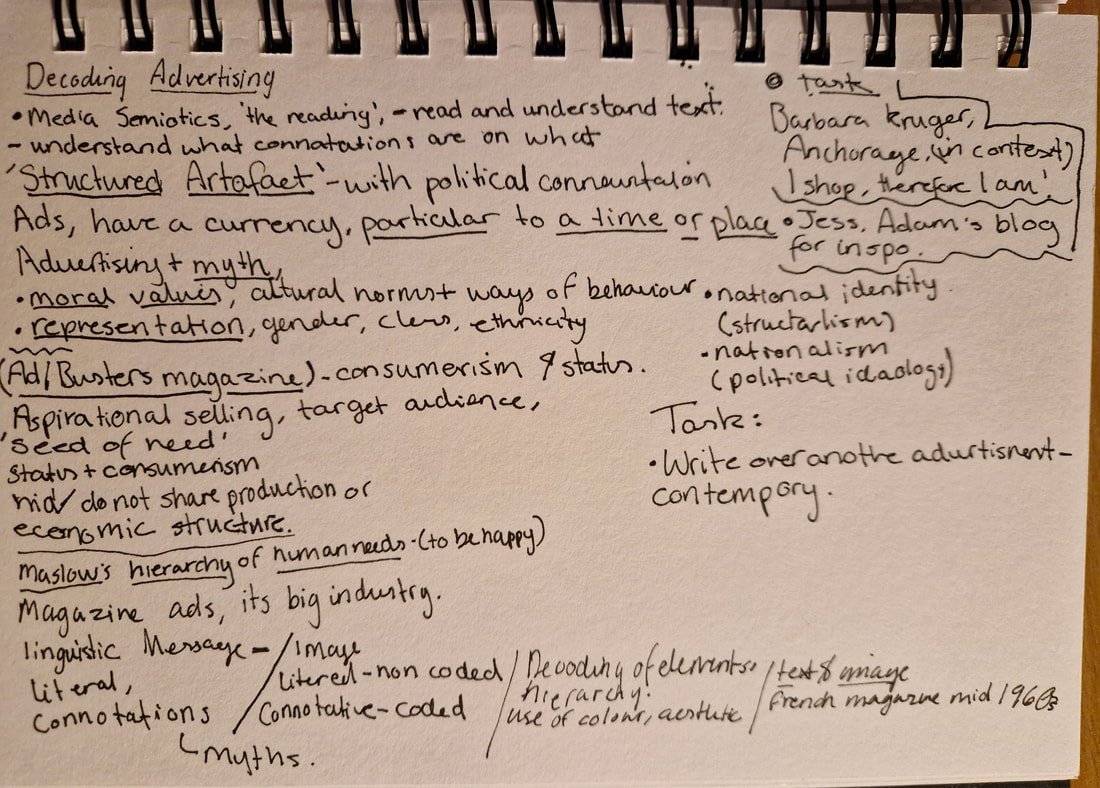 Decoding Advertising
• Media Semiotics, 'the reading', - read and understand text.
- understand what connotations are on what
'Structured Artafact' - with political connountaion
Ads, have a currency, particular to a time or place
Advertising + myth,
• moral values, cultural norms + ways of behaviour
• representation, gender, class, ethnicity
(Ad/Busters magazine) - consumerism & status.
Aspirational selling, target audience,
'seed of need'
status + consumerism
do not share production or
economic structure.
Maslow's hierarchy of human needs - (to be happy)
Magazine ads, its big industry.
linguistic Message -
literal,
connotations
myths.
/ Image
litered - non coded
Connotative - coded
/ Decoding of elements.
hierarchy.
use of colour, aesthetic
/ text & image
French magazine mid 1960s
task
Barbara Kruger,
Anchorage, (in context)
'I shop, therefore I am'.
• Jess, Adam's blog
for inspo.
• national identity
(structarlism)
• nationalism
(political ideaology)
Task:
• Write over anothe advurtisment -
contempory.